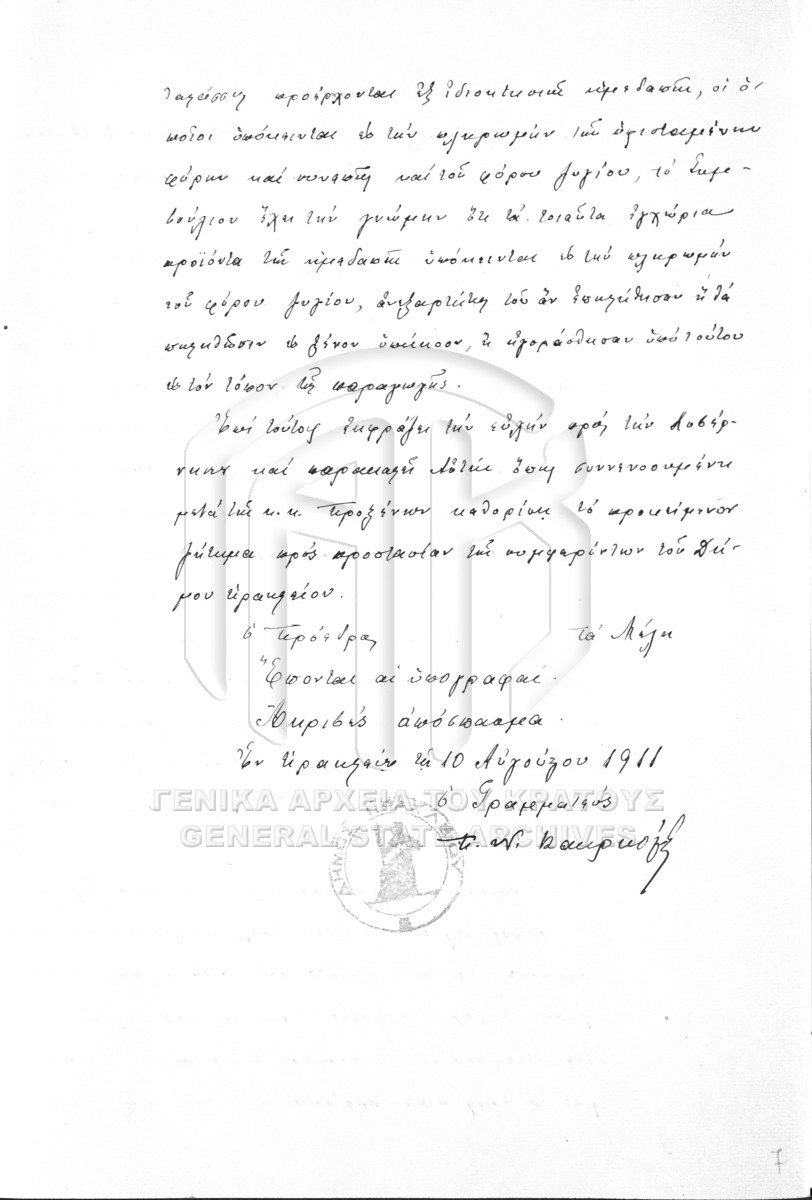 προέρχονται ἐξ ἰδιοκτησιῶν ἡμεδαπῶν, οἱ ὁ-
ποῖοι ὑπόκεινται εἰς τὴν πληρωμὴν τῶν ὑφισταμένων
φόρων καὶ συνεπῶς καὶ τοῦ φόρου ζυγίου, τὸ Συμ-
βούλιον ἔχει τὴν γνώμην ὅτι τὰ τοιαῦτα ἐγχώρια
προϊόντα τῶν ἡμεδαπῶν ὑπόκεινται εἰς τὴν πληρωμὴν
τοῦ φόρου ζυγίου, ἀνεξαρτήτως τοῦ ἂν ἐπωλήθησαν ἢ θὰ
πωληθῶσιν εἰς ξένον ὑπήκοον, ἢ ἠγοράσθησαν ὑπὸ τούτου
εἰς τὸν τόπον τῆς παραγωγῆς.
Ἐπὶ τούτοις ἐκφράζει τὴν εὐχὴν πρὸς τὴν Κυβέρ-
νησιν καὶ παρακαλεῖ Αὐτὴν ὅπως συννενοουμένη
μετὰ τῶν κ.κ. Προξένων καθορίσῃ τὸ προκείμενον
ζήτημα πρὸς προστασίαν τῶν συμφερόντων τοῦ Δή-
μου Ἡρακλείου.
ὁ Πρόεδρος τὰ Μέλη
Ἕπονται αἱ ὑπογραφαί.
Ἀκριβὲς ἀπόσπασμα.
Ἐν Ἡρακλείῳ τῇ 10 Αὐγούστου 1911
ὁ Γραμματεὺς
ΓΕΝΙΚΑ ΑΡΧΕΙΑ ΤΟΥ ΚΡΑΤΟΥΣ
GENERAL STATE ARCHIVES
ΔΗΜΟΣ ΗΡΑΚΛΕΙΟΥ
7